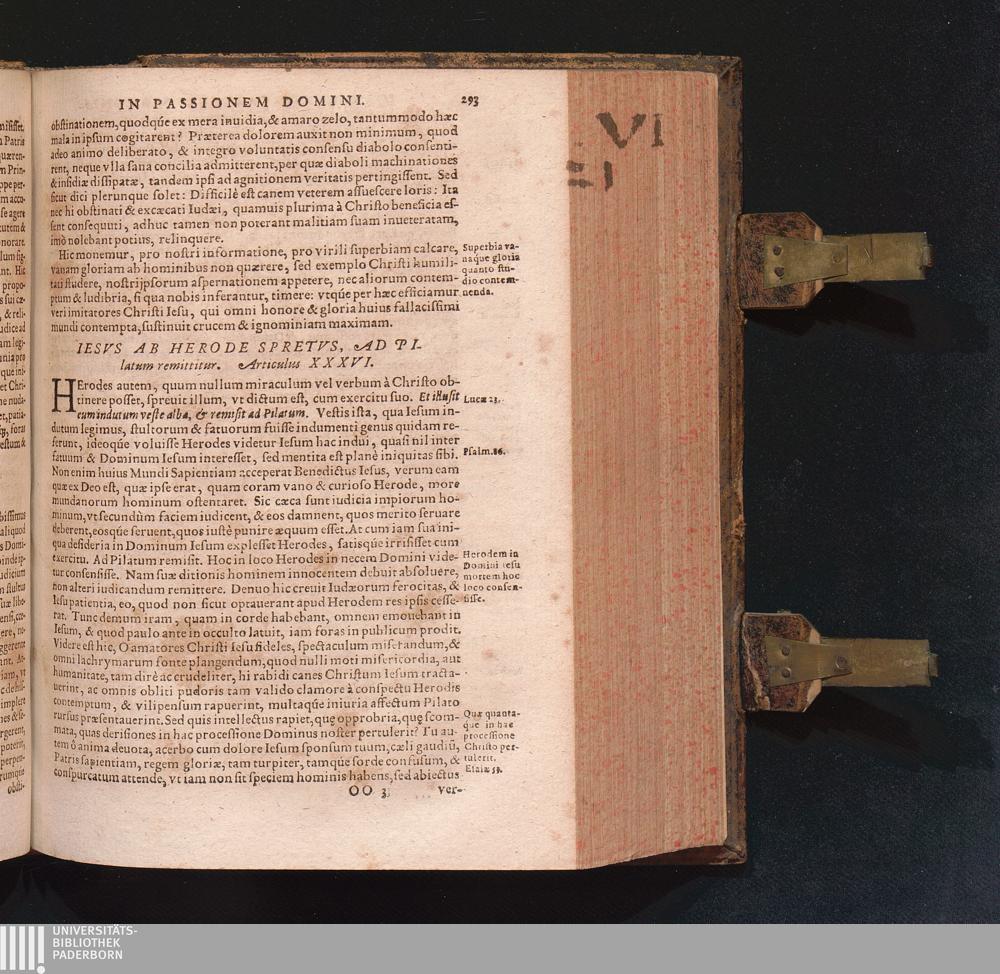 IN PASSIONEM DOMINI. 293
obſtinationem, quodq́ue ex mera inuidia, & amaro zelo, tantummodo hæc
mala in ipſum cogitarent? Præterea dolorem auxit non minimum, quod
adeo animo deliberato, & integro voluntatis conſenſu diabolo conſenti-
rent, neque vlla ſana concilia admitterent, per quæ diaboli machinationes
& inſidiæ diſſipatæ, tandem ipſi ad agnitionem veritatis pertingiſſent. Sed
ſicut dici plerunque ſolet: Difficilè eſt canem veterem aſſueſcere loris: Ita
nec hi obſtinati & excæcati Iudæi, quamuis plurima à Chriſto beneficia eſ-
ſent conſequuti, adhuc tamen non poterant malitiam ſuam inueteratam,
imò nolebant potius, relinquere.
Hic monemur, pro noſtri informatione, pro virili ſuperbiam calcare,
vanam gloriam ab hominibus non quærere, ſed exemplo Chriſti humili-
tati ſtudere, noſtrijpſorum aſpernationem appetere, nec aliorum contem-
ptum & ludibria, ſi qua nobis inferantur, timere: vtq́ue per hæc efficiamur
veri imitatores Chriſti Ieſu, qui omni honore & gloria huius fallaciſſimi
mundi contempta, ſuſtinuit crucem & ignominiam maximam.
Superbia va-
naque gloria
quanto ſtu-
dio contem-
nenda.
IESVS AB HERODE SPRETVS, AD PI-
latum remittitur. Articulus XXXVI.
HErodes autem, quum nullum miraculum vel verbum à Chriſto ob-
tinere poſſet, ſpreuit illum, vt dictum eſt, cum exercitu ſuo. Et illuſit
eum indutum veſte alba, & remiſit ad Pilatum. Veſtis iſta, qua Ieſum in-
dutum legimus, ſtultorum & fatuorum fuiſſe indumenti genus quidam re-
ferunt, ideoq́ue voluiſſe Herodes videtur Ieſum hac indui, quaſi nil inter
fatuum & Dominum Ieſum intereſſet, ſed mentita eſt planè iniquitas ſibi.
Non enim huius Mundi Sapientiam acceperat Benedictus Ieſus, verum eam
quæ ex Deo eſt, quæ ipſe erat, quam coram vano & curioſo Herode, more
mundanorum hominum oſtentaret. Sic cæca ſunt iudicia impiorum ho-
minum, vt ſecundùm faciem iudicent, & eos damnent, quos merito ſeruare
deberent, eosq́ue ſeruent, quos iuſtè punire æquum eſſet. At cum iam ſua ini-
qua deſideria in Dominum Ieſum expleſſet Herodes, ſatisq́ue irriſiſſet cum
exercitu. Ad Pilatum remiſit. Hoc in loco Herodes in necem Domini vide-
tur conſenſiſſe. Nam ſuæ ditionis hominem innocentem debuit abſoluere,
non alteri iudicandum remittere. Denuo hic creuit Iudæorum ferocitas, &
Ieſu patientia, eo, quod non ſicut optauerant apud Herodem res ipſis ceſſe-
rat. Tunc demum iram, quam in corde habebant, omnem emouebant in
Ieſum, & quod paulo ante in occulto latuit, iam foras in publicum prodit.
Videre eſt hîc, O amatores Chriſti Ieſu fideles, ſpectaculum miſerandum, &
omni lachrymarum fonte plangendum, quod nulli moti miſericordia, aut
humanitate, tam dirè ac crudeliter, hi rabidi canes Chriſtum Ieſum tracta-
uerint, ac omnis obliti pudoris tam valido clamore à conſpectu Herodis
contemptum, & vilipenſum rapuerint, multaq́ue iniuria affectum Pilato
rurſus præſentauerint. Sed quis intellectus rapiet, quę opprobria, quę ſcom-
mata, quas deriſiones in hac proceſſione Dominus noſter pertulerit? Tu au-
tem ô anima deuota, acerbo cum dolore Ieſum ſponſum tuum, cæli gaudiũ,
Patris ſapientiam, regem gloriæ, tam turpiter, tamq́ue ſorde confuſum, &
conſpurcatum attende, vt iam non ſit ſpeciem hominis habens, ſed abiectus
Lucæ 23.
Pſalm. 26.
Herodem in
Domini Ieſu
mortem hoc
loco conſen-
ſiſſe.
Quæ quanta-
que in hac
proceſſione
Chriſto per-
tulerit.
Eſaiæ 53.
OO 3 ver-
VI
UNIVERSITÄTS-
BIBLIOTHEK
PADERBORN